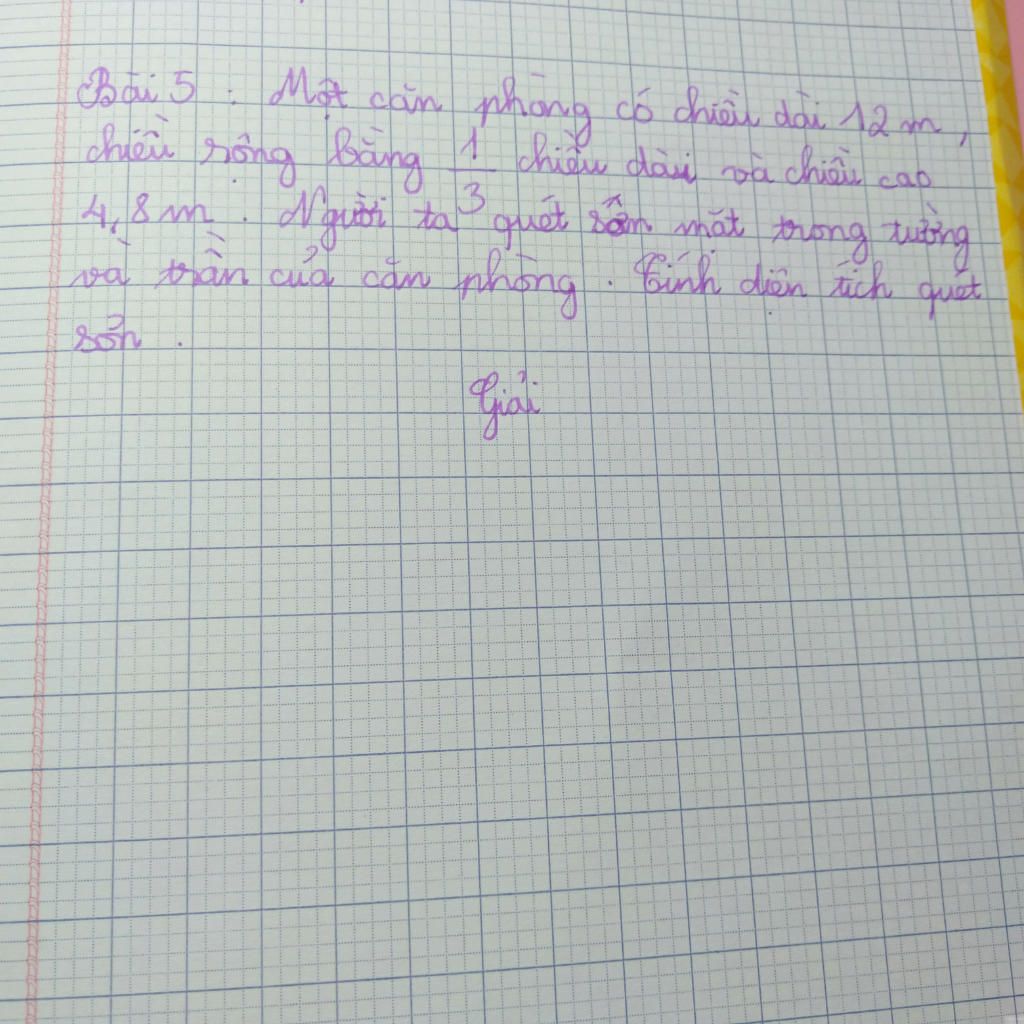 Bài 5 : Một căn phòng có chiều dài 12 m,
chiều rộng bằng 1/3 chiều dài và chiều cao
4,8 m. Người ta quét sơn mặt trong tường
và trần của căn phòng. Tính diện tích quét
sơn.
Giải